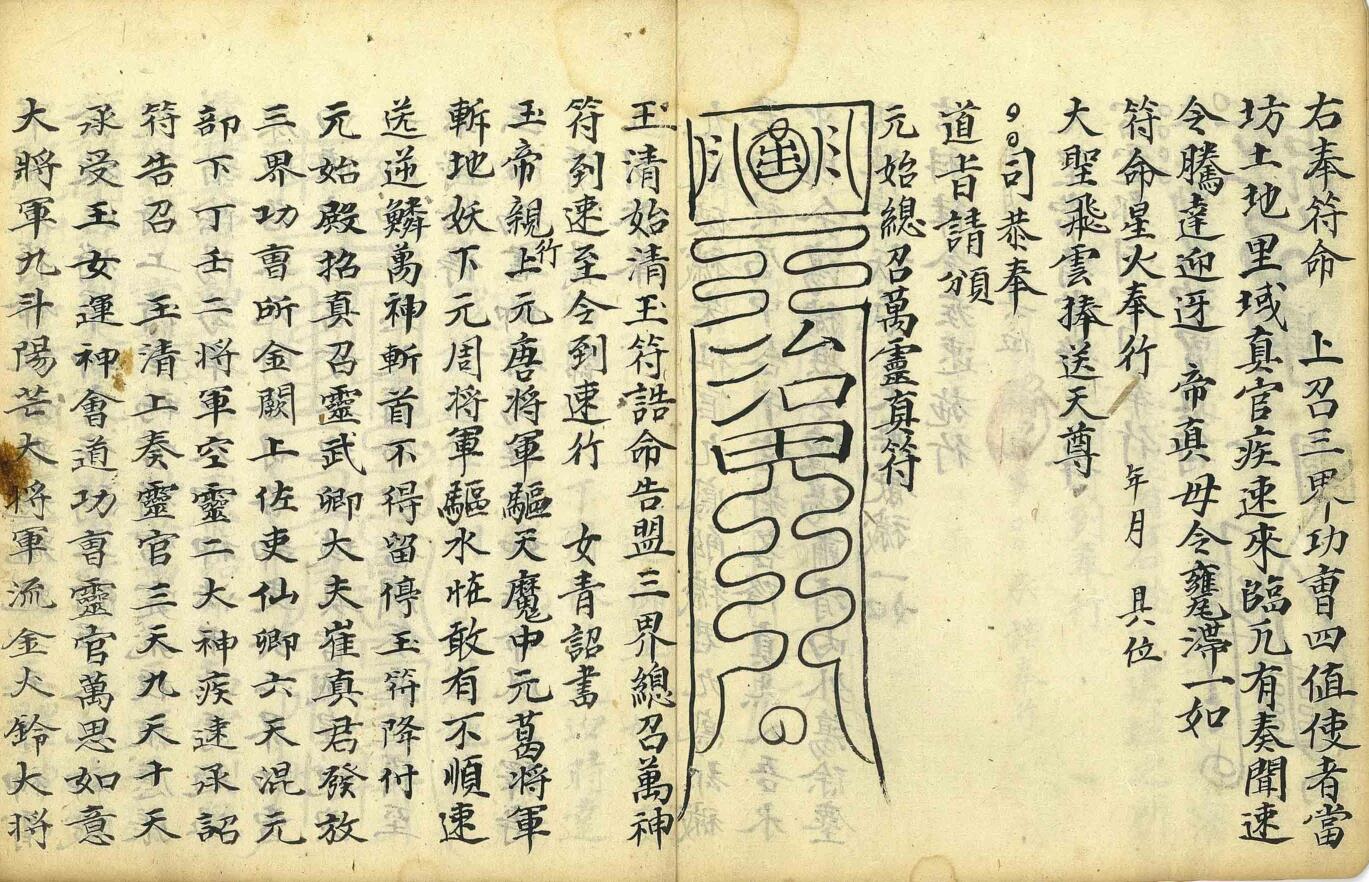 右奉符命　上召三界功曹四值使者當
坊土地里域真官疾速來臨凢有奏聞速
令騰達迎迓　帝真毋令壅滯一如
符命星火奉行　年月　具位
大聖飛雲捧送天尊
司恭奉
道旨請頒
元始總召萬靈真符
玉清始清玉符誥命告盟三界總召萬神
符到速至令到速行　女青詔書
玉帝親行上元唐將軍驅天魔中元葛將軍
斬地妖下元周將軍驅水怪敢有不順速
送逆鱗萬神斬首不得留停玉符降付
元始殿招真召靈武卿大夫崔真君發放
三界功曹所金闕上佐吏仙卿六天混元
部下丁壬二將軍空靈二大神疾速承詔
符告召上玉清上奏靈官三天九天十天
承受玉女運神會道功曹靈官萬思如意
大將軍九斗陽芒大將軍流金火鈴大將